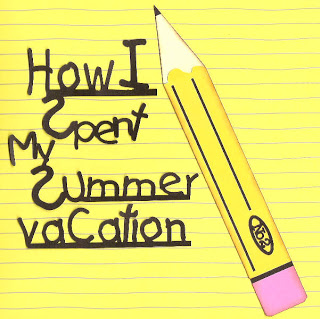 How I
Spent
My
Summer
vaCation
No2